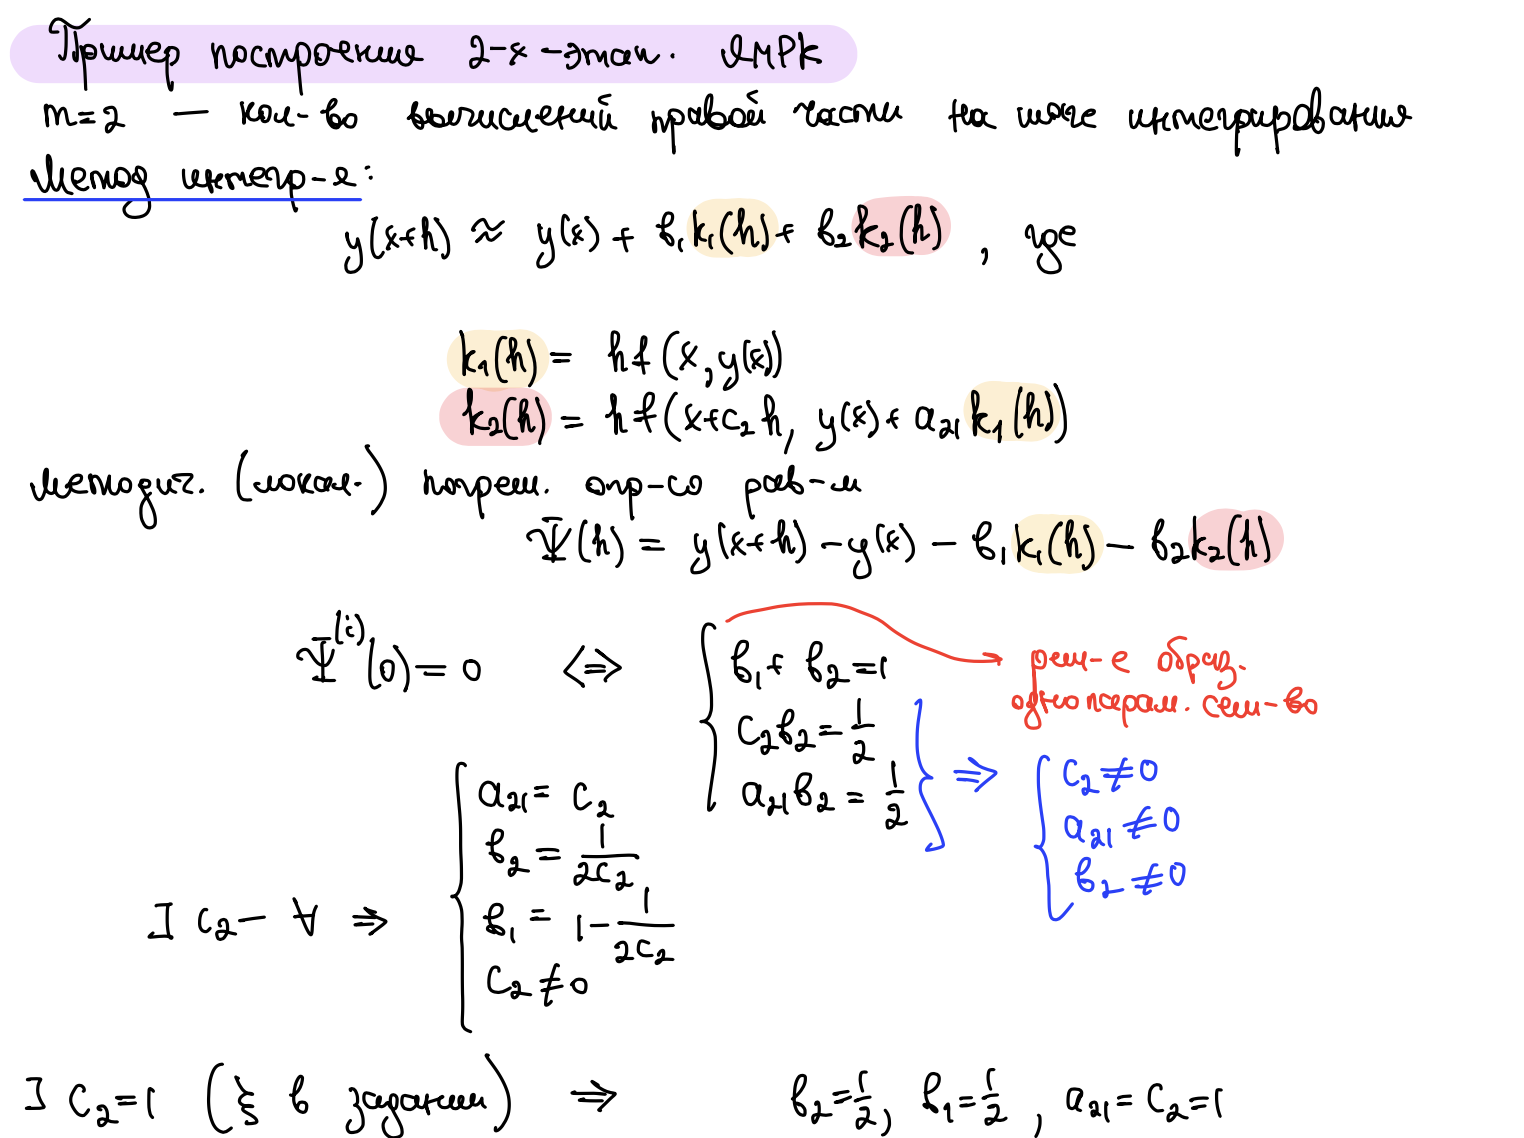 Пример построения 2-х-этап. ЯМРК
m=2 — кол-во вычислений правой части на шаге интегрирования
Метод интегр-я:
y(x+h) ≈ y(x) + b₁k₁(h) + b₂k₂(h) , где
k₁(h) = hf(x, y(x))
k₂(h) = hf(x+c₂h, y(x) + a₂₁k₁(h))
Методич. (локал.) погреш. опр-со рав-м
Ψ(h) = y(x+h) - y(x) - b₁k₁(h) - b₂k₂(h)
Ψ⁽ⁱ⁾(0) = 0 <=> { b₁ + b₂ = 1
c₂b₂ = 1/2
a₂₁b₂ = 1/2 }
реш-е образ.
однопарам. сем-во
=> { c₂ ≠ 0
a₂₁ ≠ 0
b₂ ≠ 0
] c₂ — ∀ => { a₂₁ = c₂
b₂ = 1/(2c₂)
b₁ = 1 - 1/(2c₂)
c₂ ≠ 0
] c₂ = 1 (ξ в задании) => b₂ = 1/2, b₁ = 1/2, a₂₁ = c₂ = 1